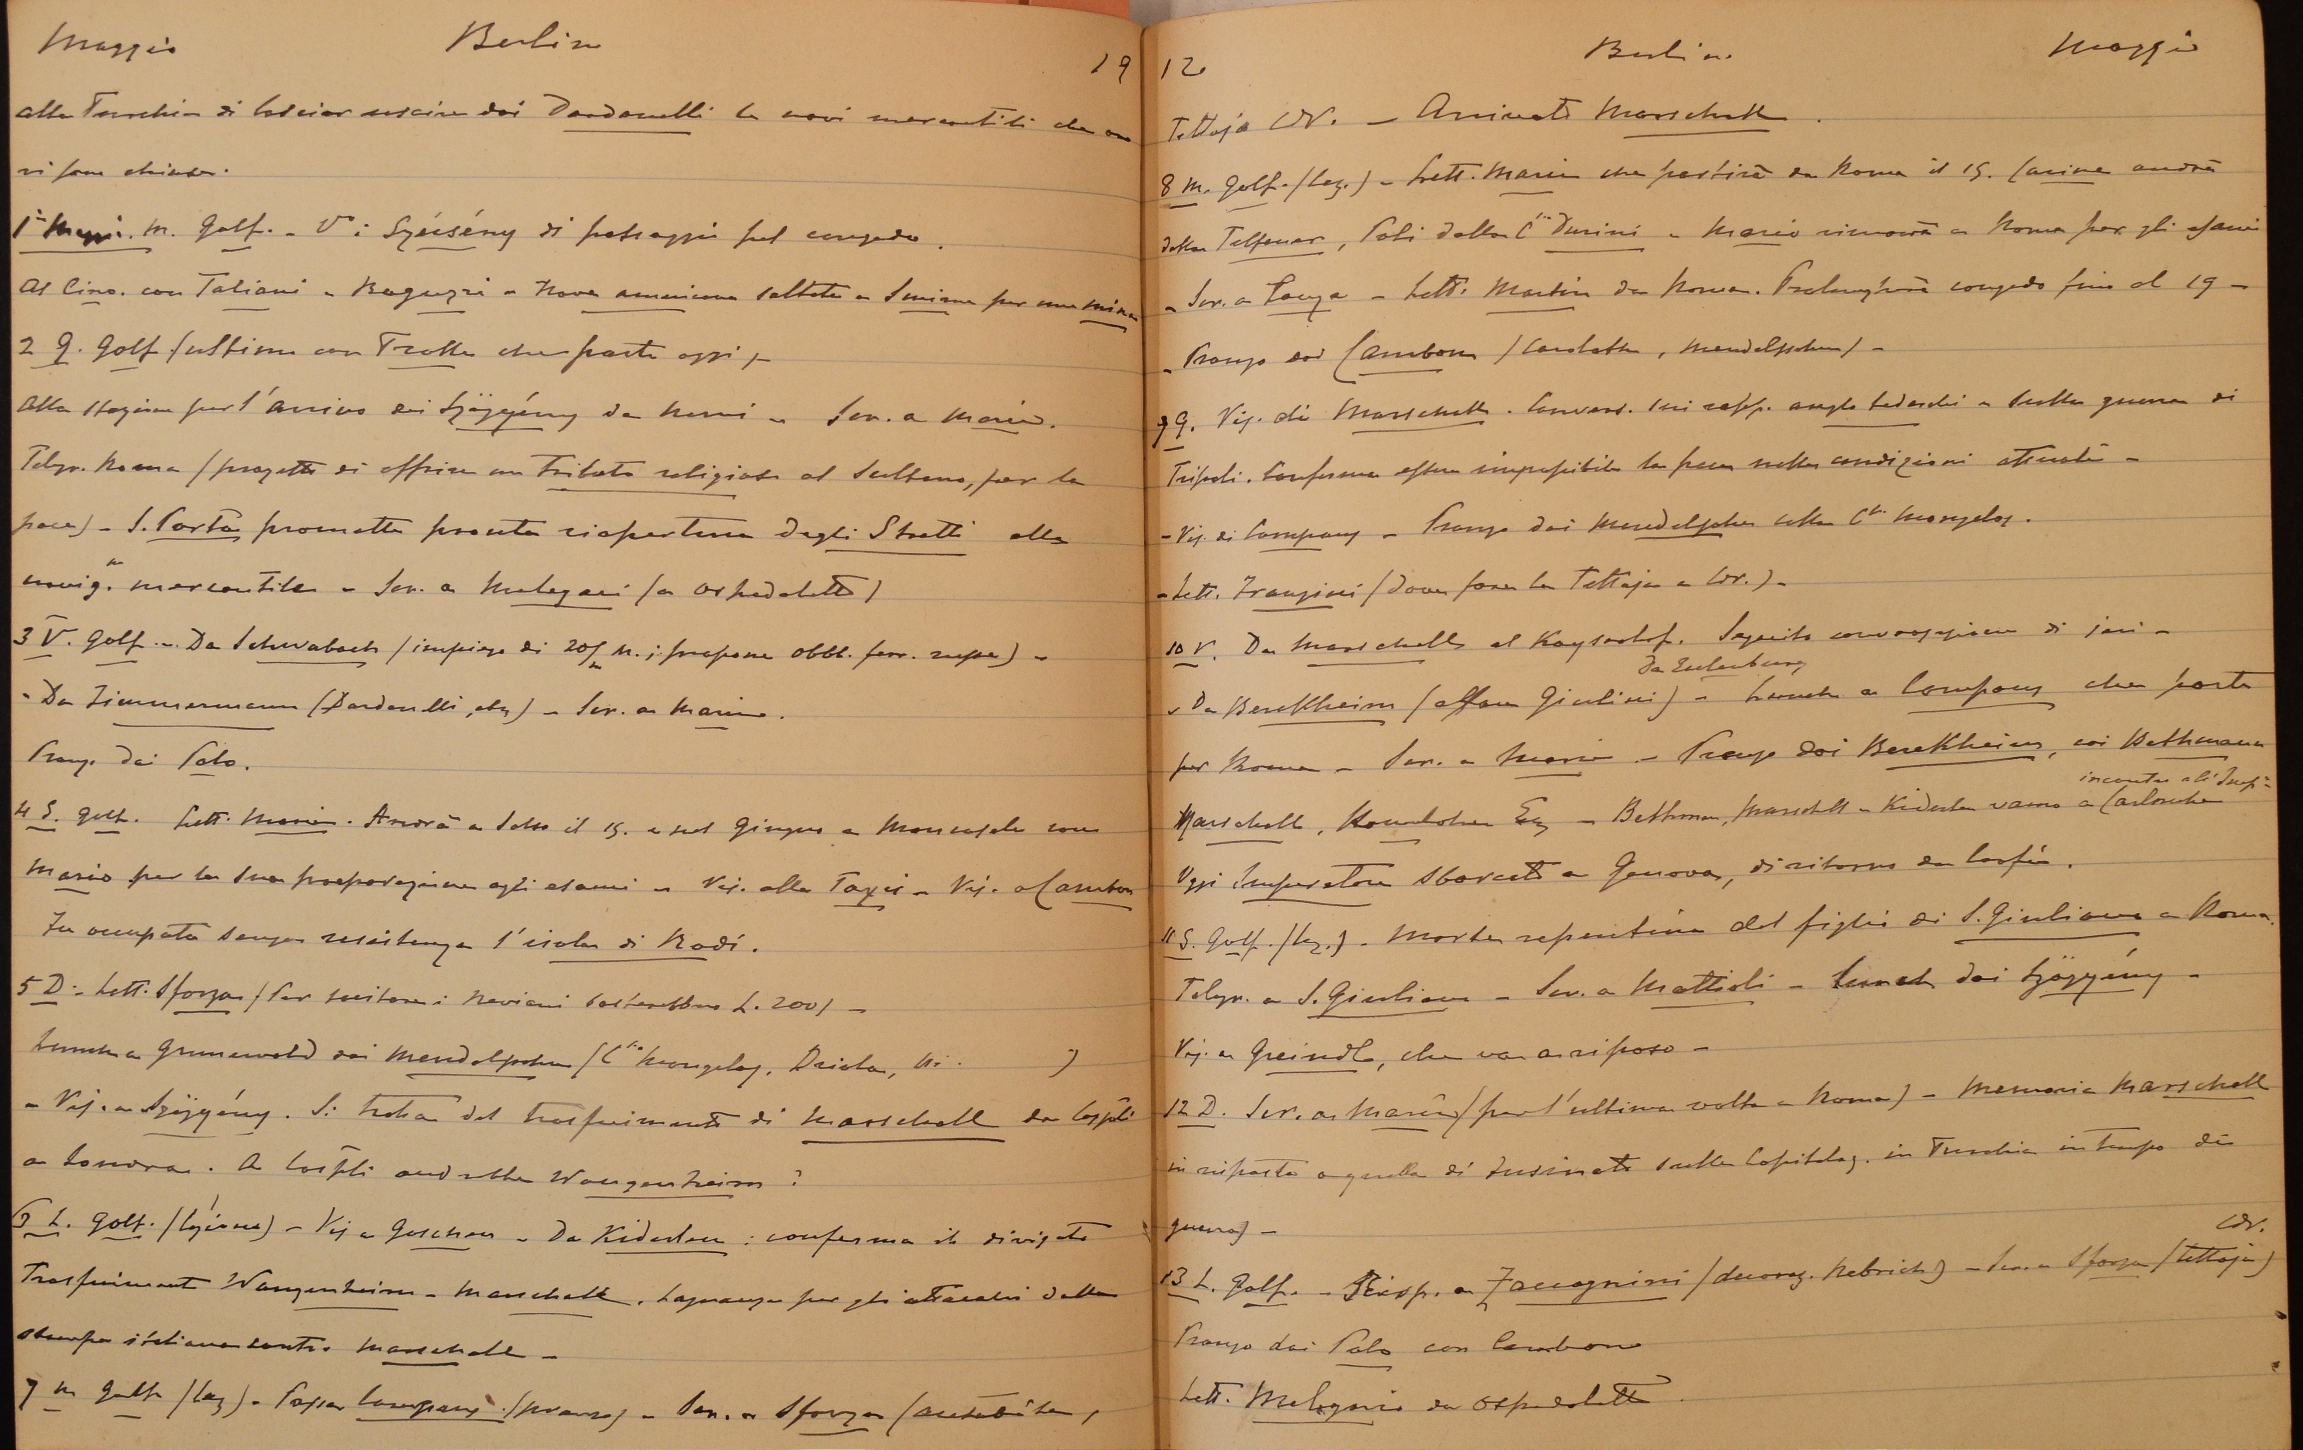 Maggio Berlino 19
alla Turchia di lasciar uscire dai Dardanelli le navi mercantili che ora
vi sono chiuse.
1° Maggio. M. Golf. - V° i Szécsény di passaggio pel congedo.
Al Circo. con Taliani - Nave americana saltata a Smirne per una mina
2 G. Golf (ultimo con che parte oggi) -
Alla stazione per l'arrivo dei Szögyény da - Scr. a Maria.
Telgr. Roma (progetto di offrire un tributo religioso al Sultano, per la
pace) - S. Porta promette pronta riapertura degli Stretti alla
navig.ne mercantile - Scr. a Melegari (a Ospedaletti)
3 V. Golf. - Da Schwabach (impiego di 20/m M.; propone obbl. ferr. russe) -
- Da Zimmermann (Dardanelli, etc) - Scr. a Maria.
Pranzo dai Polo.
4 S. Golf. Lett. Maria. Andrà a Salso il 15. e nel Giugno a con
Mario per la sua preparazione agli esami - Vis. alla Taxis - Vis. a Cambon
Fu occupata senza resistenza l'isola di Rodi.
5 D. - Lett. Sforza (Per costerebbero L. 200) -
Lunch a Grunewald dai Mendelssohn (C.sa )
- Vis. a Szögyény. Si tratta del trasferimento di Marschall da Cospoli
a Londra. A Cospoli andrebbe Wangenheim?
6 L. Golf. (lezione) - Vis. a Goschen - Da Kiderlen: conferma il divisato
Trasferimento Wangenheim - Marschall. Lagnanza per gli attacchi della
stampa italiana contro Marschall -
7 M Golf (lez) - Compans (pranzo) - Scr. a Sforza
12 Berlino Maggio
Tettoja CDV. - Arrivato Marschall.
8 M. Golf. (lez.) - Lett. Maria che partirà da Roma il 15. andrà
dalla Telfener, Poli dalla C.sa Durini - Mario rimarrà a Roma per gli esami
- Scr. a Lanza - Lett. Martin da Roma. Prolungherà congedo fino al 19 -
- Pranzo dai Cambon ( , Mendelssohn) -
9 G. Vis. di Marschall. Convers. sui rapp. anglo tedeschi - sulla guerra di
Tripoli. Conferma essere impossibile la pace nelle condizioni attuali -
- Vis. di Compans - Pranzo dai Mendelssohn colla C.sa
- Lett. Frangini (dove sono la Tettoja a CDV.) -
10 V. Da Marschall al Kayserhof. Seguito conversazione di jeri -
Da Eulenburg
- Da Berckheim (affare Giulini) - Lunch a Compans che parte
per Roma - Scr. a Maria - Pranzo dai Berckheim, coi Bethmann
incontro all'Imp.e
Marschall, Hohenlohe - Bethmann, Marschall - Kiderlen vanno a Carlsruhe
Oggi Imperatore sbarcato a Genova, di ritorno da Corfù.
11 S. Golf. (lez.) - Morte repentina del figlio di S. Giuliano a Roma.
Telgr. a S. Giuliano - Scr. a Mattioli - Lunch dai Szögyény -
Vis. a Greindl, che va a riposo -
12 D. Scr. a Maria (per l'ultima volta a Roma) - Memoria Marschall
in risposta a quella di Fusinato sulle Capitolaz. in Turchia in tempo di
guerra) -
CDV.
13 L. Golf. - Risp. a Zaccagnini (decoraz. ) - Scr. a Sforza (tettoja)
Pranzo dai Polo con Cambon
Lett. Melegari da Ospedaletti.